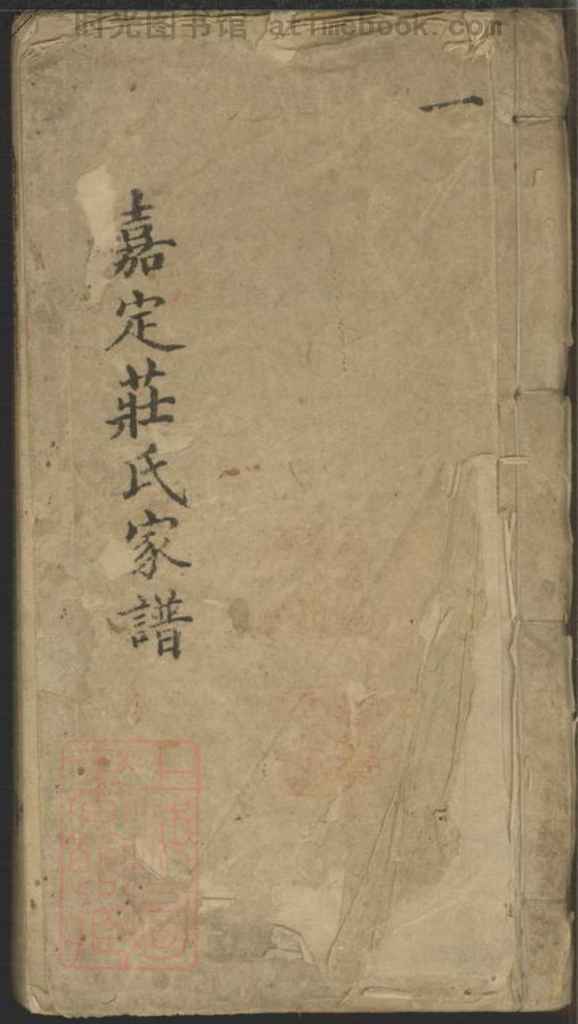 时光图书馆 atimebook.com
一
嘉定莊氏家譜